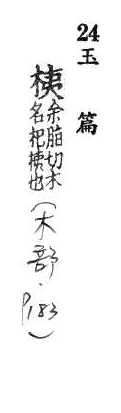 24玉篇
桋余脂切木
名杞桋也(木部.P183)